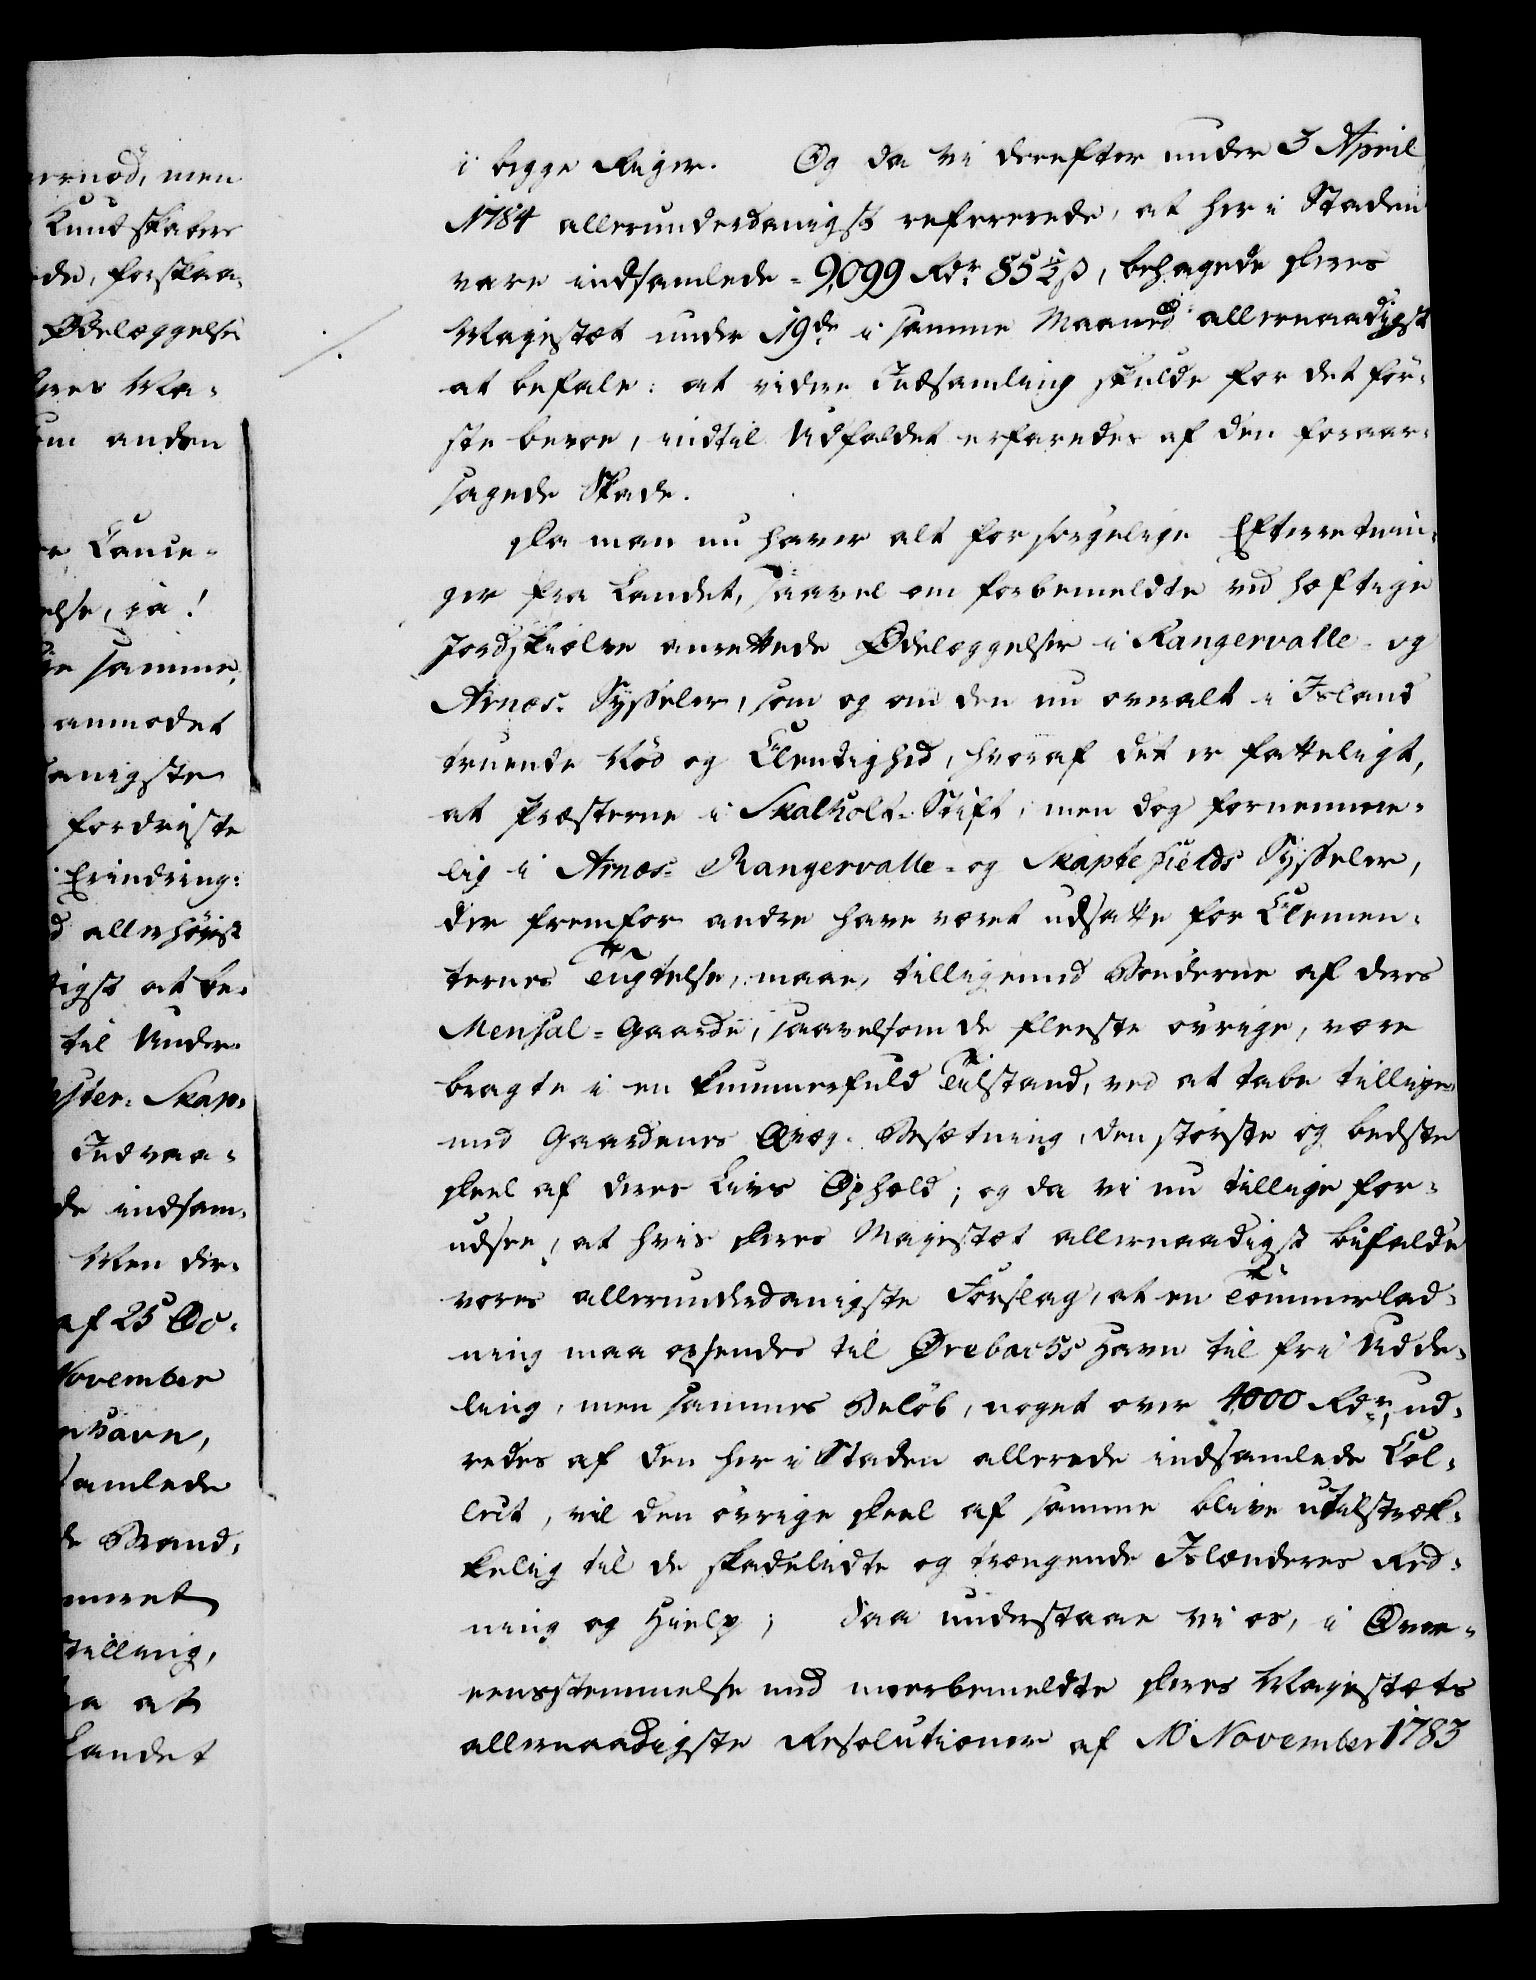 ernöd, men
Kundskaber
de, forskaa-
Ödelæggelse
Deres Ma-
som anden
Cance-
else, ja!
samme,
anmodet
danigste
fordriste
Erindring:
allerhöist
digst at be-
til Under-
Skap-
Indvaa-
de indsam-
Men der-
af 25 Oc-
November
havn,
samlede
Brand-
meret
stilling,
at
Landet
i begge Riger. Og da vi derefter under 3 April
1784 allerunderdanigst refererede, at her i Staden
vare indsamlede = 9,099 Rdr. 85½ s, behagede Deres
Majestæt under 19de i samme Maaned allernaadigst
at befale: at videre Indsamling skulde for det för-
ste beroe, indtil Udfaldet erfaredes af den foraar-
sagede Skade.
Da man nu haver alt for sörgelige Efterretnin-
ger fra Landet, saavel om forbemeldte ved heftige
Jordskielve anrettede Ödelæggelser i Rangervalle- og
Arnes- Sysseler, som og om den nu overalt i Island
truende Nöd og Elendighed, hvoraf det er fatteligt,
at Præsterne i Skalholt-Stift, men dog fornemme-
lig i Arnes- Rangervalle- og Skaptefields Sysseler,
der fremfor andre have været udsatte for Elemen-
ternes Tugtelse, maae, tilligemed Bönderne af deres
Mensal-Gaarde, saavelsom de fleeste övrige, være
bragte i en kummerfuld Tilstand, ved at tabe tillige-
med Gaardenes Qvæg-Besætning, den störste og bedste
Deel af deres Livs Ophold; og da vi nu tillige for-
udsee, at hvis Deres Majestæt allernaadigst bifalder
vores allerunderdanigste Forslag, at en Tömmerlad-
ning maa opsendes til Örebachs Havn til fri Udde-
ling, men sammes Belöb, noget over 4000 Rdr., ud-
redes af den her i Staden allerede indsamlede Col-
lect, vil den övrige Deel af samme blive utilstræk-
kelig til de skadelidte og trængende Islænderes Red-
ning og Hielp; Saa understaae vi os, i Over-
eensstemmelse med meerbemeldte Deres Majestæts
allernaadigste Resolutioner af 10 November 1783